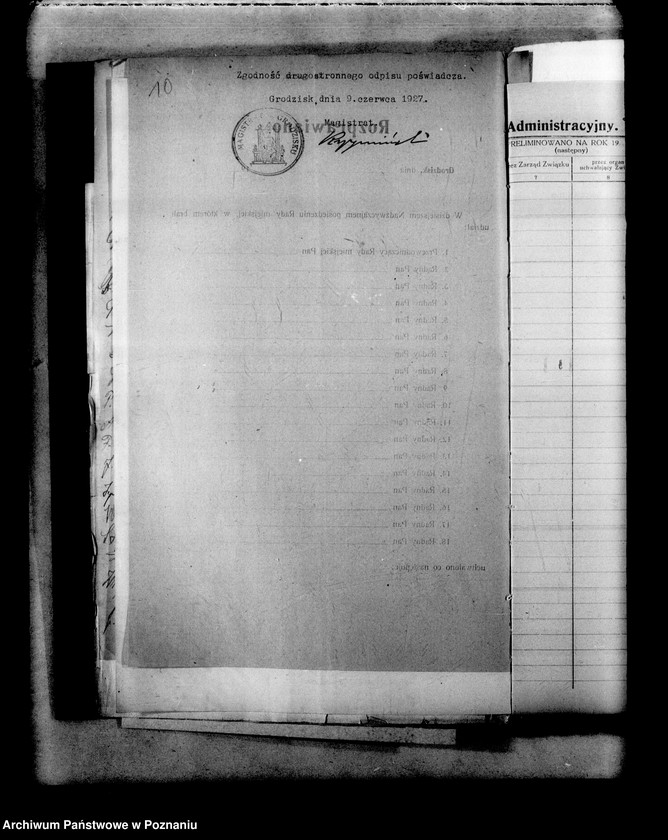 10
Zgodność drugostronnego odpisu poświadcza.
Grodzisk,dnia 9.czerwca 1927.
Magistrat.
Rozprawiano
Grodzisk, dnia
W dzisiejszem Nadzwyczajnem posiedzeniu Rady miejskiej, w którem brali
udział
1. Przewodniczący Rady miejskiej Pan
2. Radny Pan
3. Radny Pan
4. Radny Pan
5. Radny Pan
6. Radny Pan
7. Radny Pan
8. Radny Pan
9. Radny Pan
10. Radny Pan
11. Radny Pan
12. Radny Pan
13. Radny Pan
14. Radny Pan
15. Radny Pan
16. Radny Pan
17. Radny Pan
18. Radny Pan
uchwalono co następuje:
Administracyjny.
PRELIMINOWANO NA ROK 19
(następny)
Zarząd Związku
przez organ
uchwalający
7
8
Archiwum Państwowe w Poznaniu